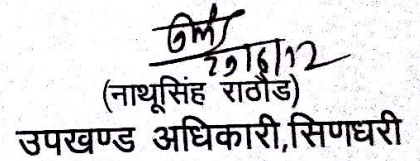 29/6/12
(नाथूसिंह राठौड)
उपखण्ड अधिकारी,सिणधरी